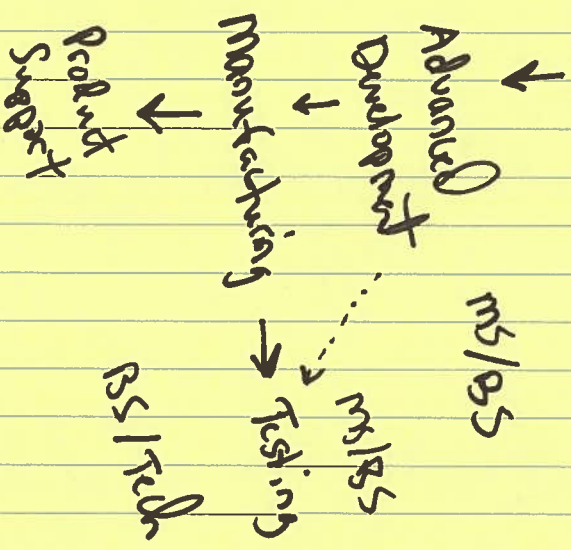 Advanced
Development
MS/BS
Manufacturing
Testing
MS/BS
BS/Tech
Product
Support